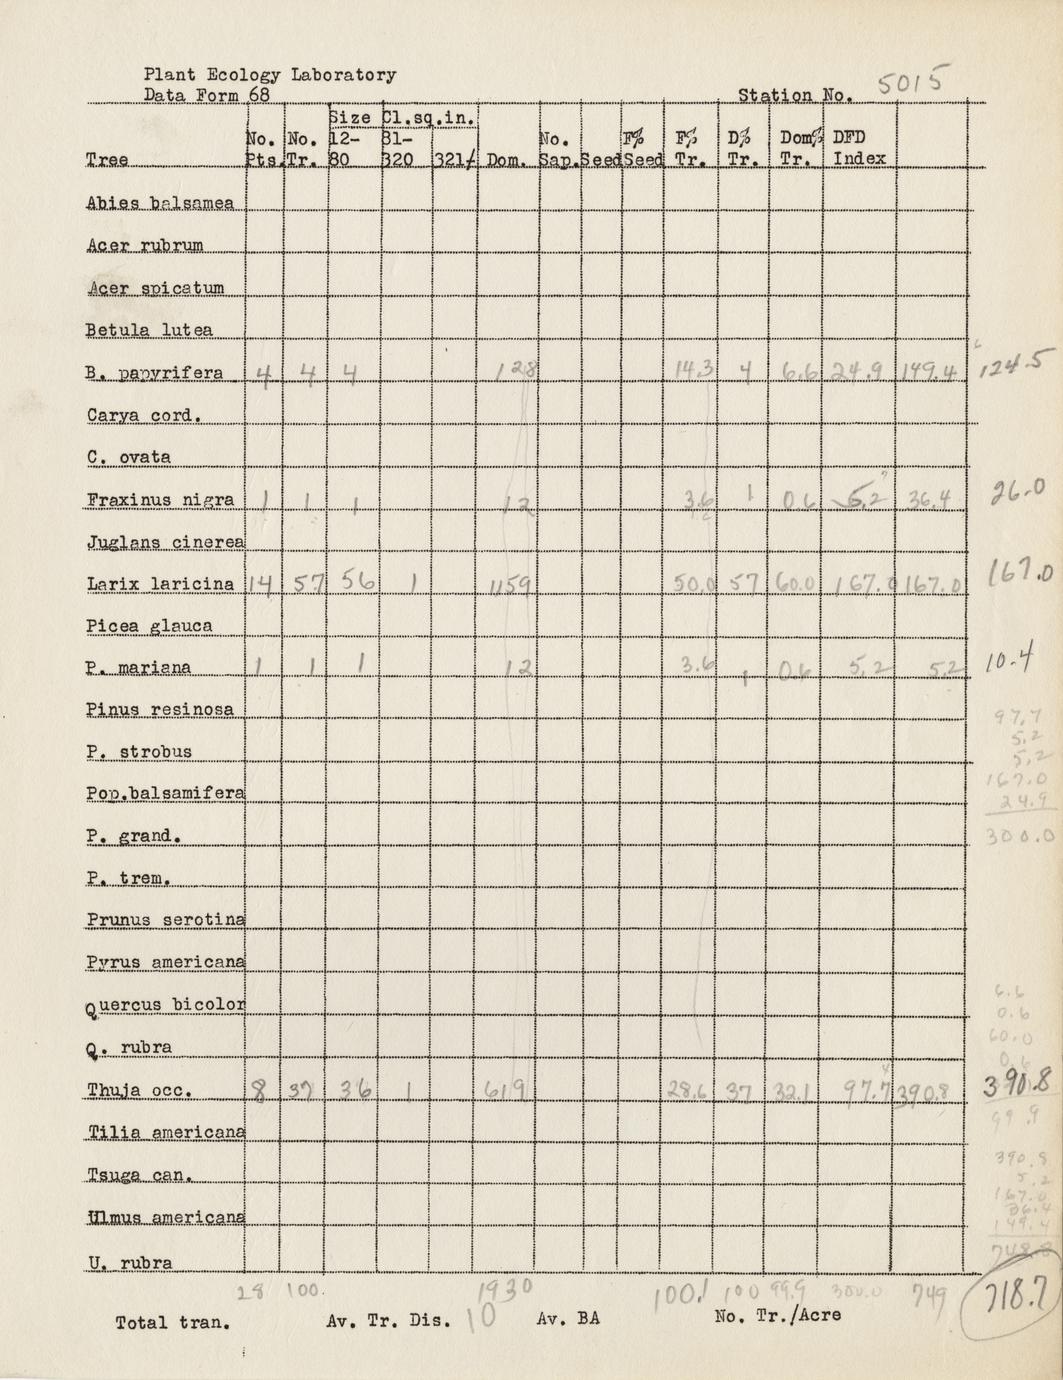 Plant Ecology Laboratory
Data Form 68 Station No. 5015
Size Cl.sq.in.
No. No. 12- 81- No. F% F% D% Dom% DFD
Tree Pts. Tr. 80 320 321/ Dom. Sap. Seed Seed Tr. Tr. Tr. Index
Abies balsamea
Acer rubrum
Acer spicatum
Betula lutea
B. papyrifera 4 4 4 128 14.3 4 6.6 24.9 149.4 124.5
Carya cord.
C. ovata
Fraxinus nigra 1 1 1 12 3.6 1 0.6 5.2 36.4 26.0
Juglans cinerea
Larix laricina 14 57 56 1 1159 50.0 57 60.0 167.0 167.0 167.0
Picea glauca
P. mariana 1 1 1 12 3.6 1 0.6 5.2 5.2 10.4
Pinus resinosa 97.7
5.2
P. strobus 5.2
167.0
Pop.balsamifera 24.9
P. grand. 300.0
P. trem.
Prunus serotina
Pyrus americana
6.6
Quercus bicolor 0.6
60.0
Q. rubra
0.6
Thuja occ. 8 37 36 1 619 28.6 37 32.1 97.7 390.8 390.8
99.9
Tilia americana
390.8
Tsuga can. 5.2
167.0
Ulmus americana 36.4
149.4
748.8
U. rubra
28 100. 1930 100.1 100 99.9 300.0 749 718.7
Total tran. Av. Tr. Dis. 10 Av. BA No. Tr./Acre